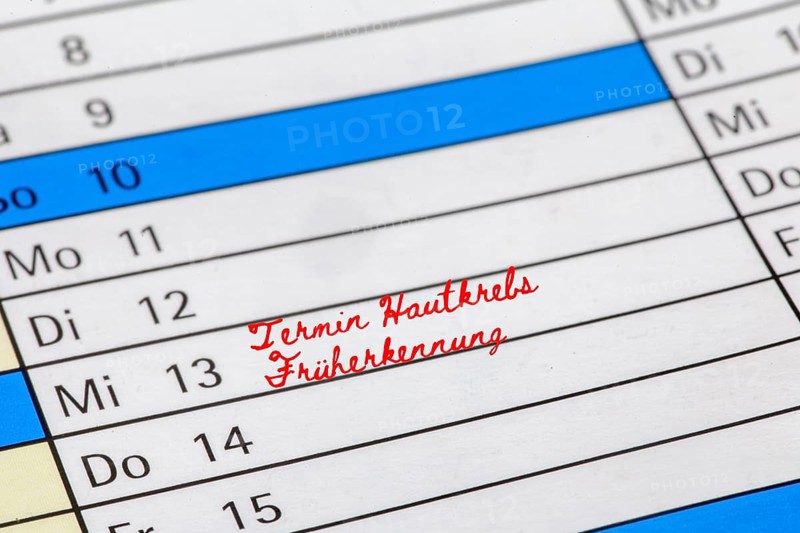 8
Mo
9
Di
So 10
Mi
Mo 11
Do
Di 12
Termin Hautkrebs
Früherkennung
Mi 13
Do 14
Fr 15
PHOTO12
PHOTO12
PHOTO12